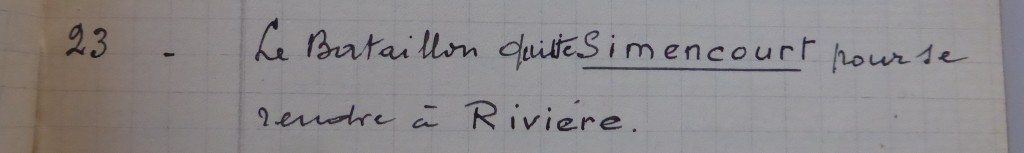 23 - Le Bataillon quitte Simencourt pour se
rendre à Rivière.